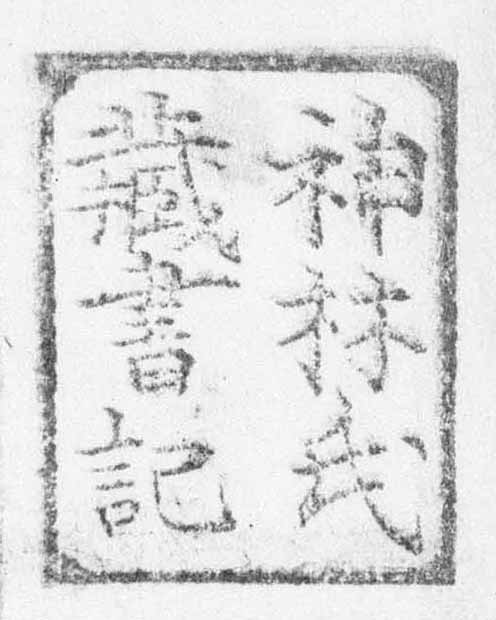 神林氏
藏書記